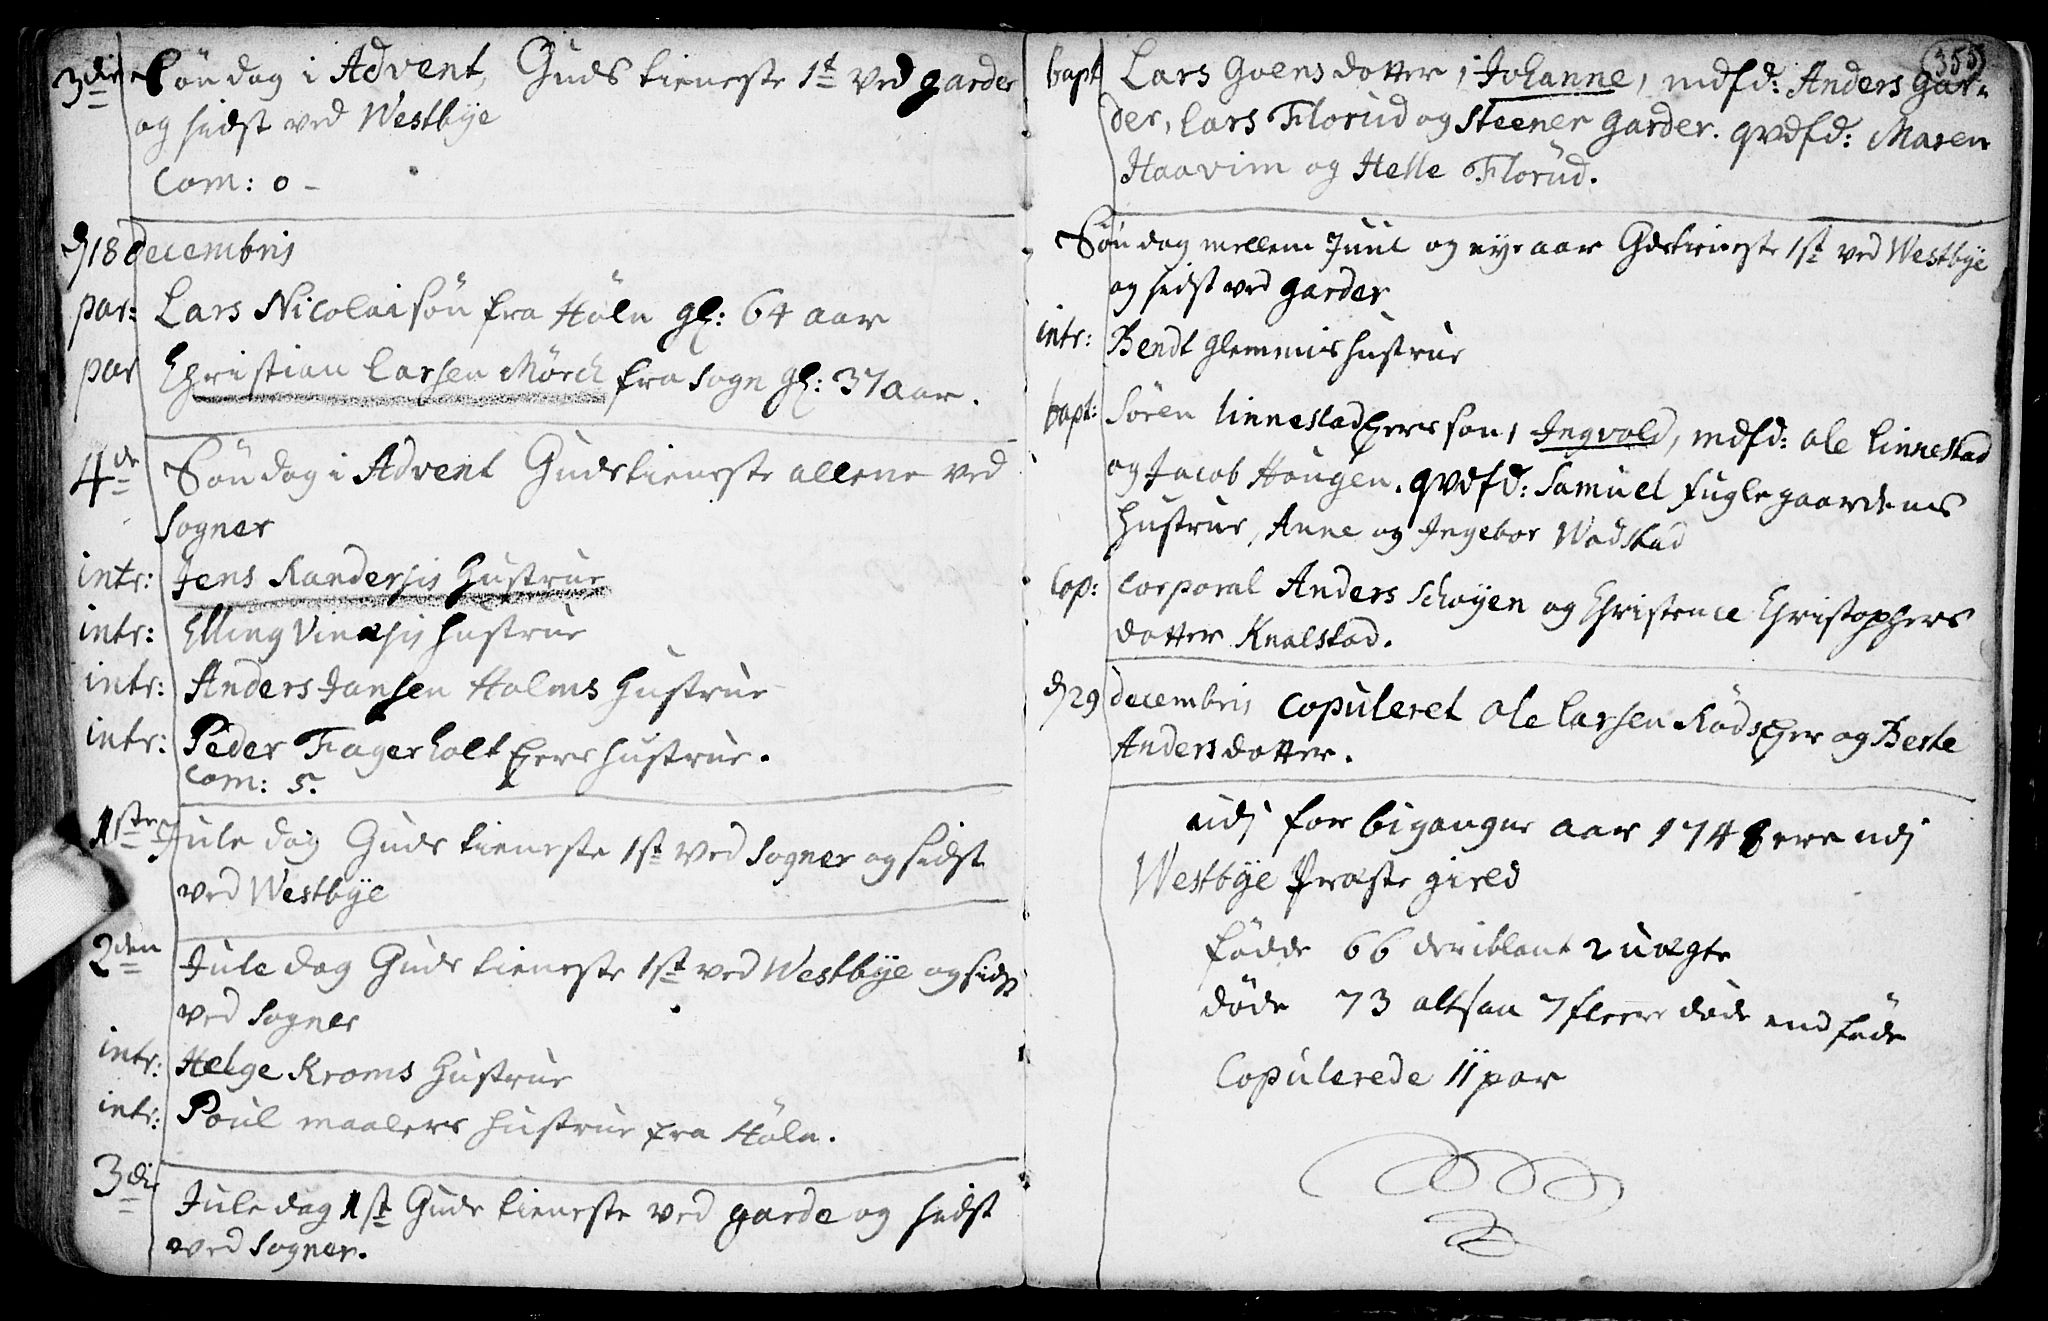 3die Søndag i Advent, Guds tieneste 1st ved garder
og sidst ved Westbÿe
Com: 0 -
d 18 decembris
par: Lars Nicolai søn fra Høln gl: 64 aar
par Christian Larsen Mørch fra Sogn gl: 37 aar.
4de Søndag i Advent Gudstieneste allene ved
Sogner
intr: Jens Randersis Hustrue
intr: Elling Vinæsis hustrue
intr: Anders Jansen Holms Hustrue
intr: Peder Fagerholt Eers hustrue.
Com: 5.
1ste Jule dag Guds tieneste 1st ved Sogner og sidst
ved Westbÿe
2den Jule dag Guds tieneste 1st ved Westbÿe og sidst
ved Sogner
intr: Helge Kroms Hustrue
intr: Poul maalers hustrue fra Høln.
3die Jule dag 1st Guds tieneste ved garde og sidst
ved Sogner.
355
bapt Lars Goens dotter, Johanne, mdfd: Anders Gar-
der, Lars Florud og Steener Garder. qvdfd: Maren
Haavim og Helle Florud.
Søndag mellem Juul og nye aar Gdstieneste 1st ved Westbÿe
og sidst ved garder
intr: Bendt Glemmis hustrue
bapt: Søren Linnestad Eers søn, Ingvold, mdfd: ole Linnestad
og Jacob Haugen. qvdfd: Samuel fuglegaardens
Hustrue, Anne og Ingebor Wadstad
Cop: Corporal Anders Schøyen og Christence Christophers
dotter Knalstad.
d 29 decembris Copuleret ole Larsen Røds Eger og Berte
Andersdotter.
udj forbigangne aar 1748 ere udj
Westbÿe Præste gield
fødde 66 deriblant 2 uægte
døde 73 altsaa 7 fleere døde end føde
Copulerede 11 par